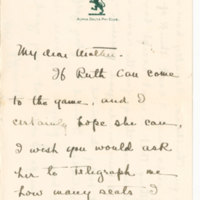 Alpha Delta Phi Club.
My dear Mother:
If Ruth can come
to the game, and I
certainly hope she can,
I wish you would ask
her to telegraph me
how many seats I